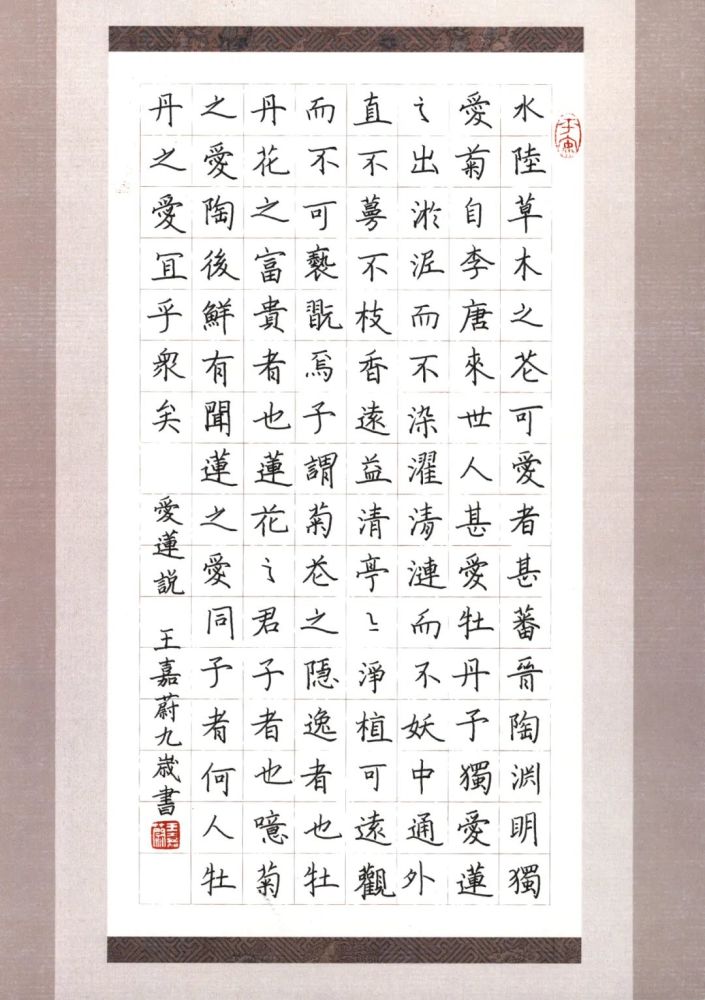 水陸草木之花可愛者甚蕃晉陶渊明獨
愛菊自李唐來世人甚愛牡丹予獨愛蓮
之出淤泥而不染濯清漣而不妖中通外
直不蔓不枝香遠益清亭〻淨植可遠觀
而不可褻翫焉予謂菊花之隱逸者也牡
丹花之富貴者也蓮花之君子者也噫菊
之愛陶後鮮有聞蓮之愛同予者何人牡
丹之愛宜乎眾矣 愛蓮說 王嘉蔚九歲書